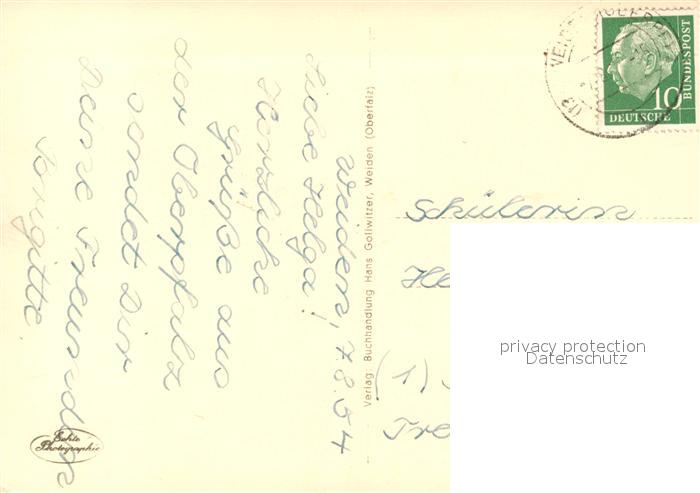 Weiden, 7.8.54
Liebe Helga!
Herzliche
Grüße aus
der Oberpfalz
sendet Dir
Deine Freundin
Brigitte
Echte
Photographie
Verlag: Buchhandlung Hans Gollwitzer, Weiden (Oberfalz)
BUNDESPOST
10
DEUTSCHE
Schülerin
He
(1)
Tre
privacy protection
Datenschutz